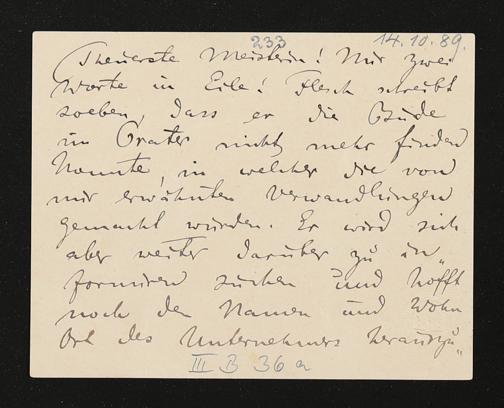 233
14.10.89.
Theuerste Meisterin! Nur zwei
Worte in Eile! Flesch schreibt
soeben, dass er die Bude
im Prater nicht mehr finden
konnte, in welcher die von
mir erwähnten Verwandlungen
gemacht wurden. Er wird sich
aber weiter darüber zu in„
formiren suchen und hofft
noch den Namen und Wohn
Ort des Unternehmers herauszu„
III B 36 a